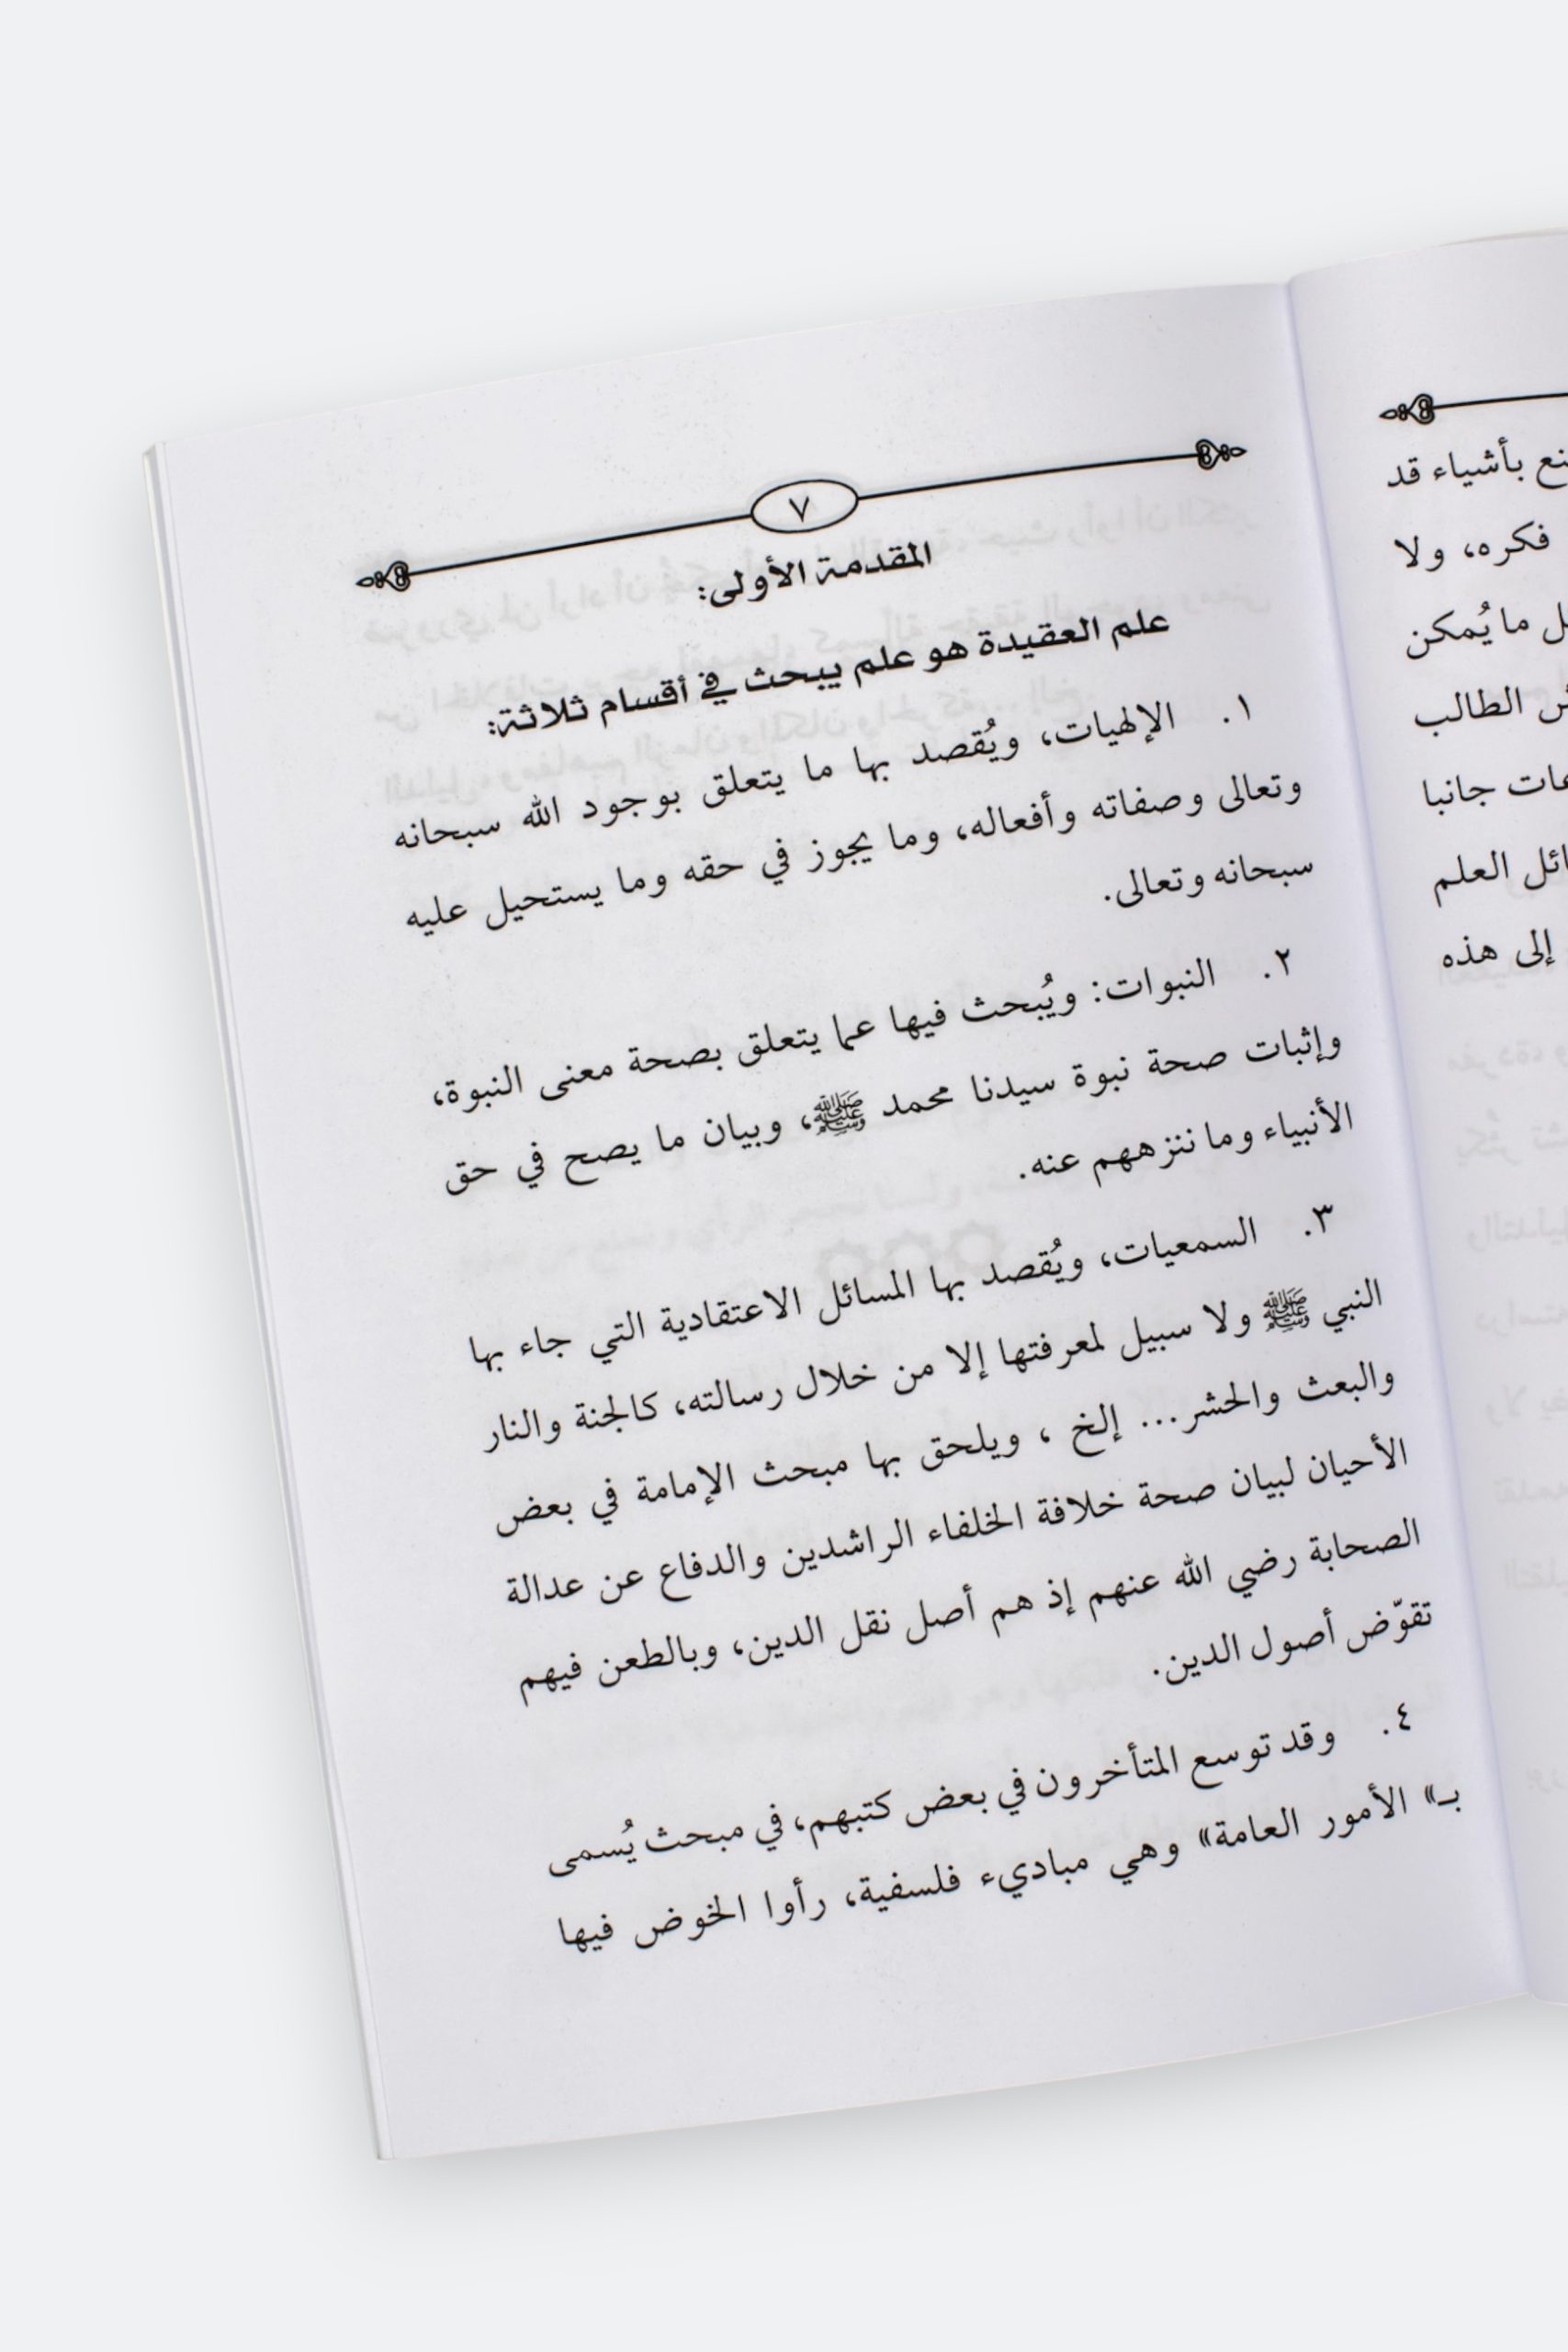 نع بأشياء قد
فكره، ولا
ل ما يُمكن
الطالب
عات جانبا
ائل العلم
إلى هذه
٧
المقدمة الأولى:
علم العقيدة هو علم يبحث في أقسام ثلاثة:
١. الإلهيات، ويُقصد بها ما يتعلق بوجود الله سبحانه
وتعالى وصفاته وأفعاله، وما يجوز في حقه وما يستحيل عليه
سبحانه وتعالى.
٢. النبوات: ويُبحث فيها عما يتعلق بصحة معنى النبوة،
وإثبات صحة نبوة سيدنا محمد ﷺ، وبيان ما يصح في حق
الأنبياء وما ننزههم عنه.
٣. السمعيات، ويُقصد بها المسائل الاعتقادية التي جاء بها
النبي ﷺ ولا سبيل لمعرفتها إلا من خلال رسالته، كالجنة والنار
والبعث والحشر... إلخ ، ويلحق بها مبحث الإمامة في بعض
الأحيان لبيان صحة خلافة الخلفاء الراشدين والدفاع عن عدالة
الصحابة رضي الله عنهم إذ هم أصل نقل الدين، وبالطعن فيهم
تقوّض أصول الدين.
٤. وقد توسع المتأخرون في بعض كتبهم، في مبحث يُسمى
بـ» الأمور العامة» وهي مباديء فلسفية، رأوا الخوض فيها